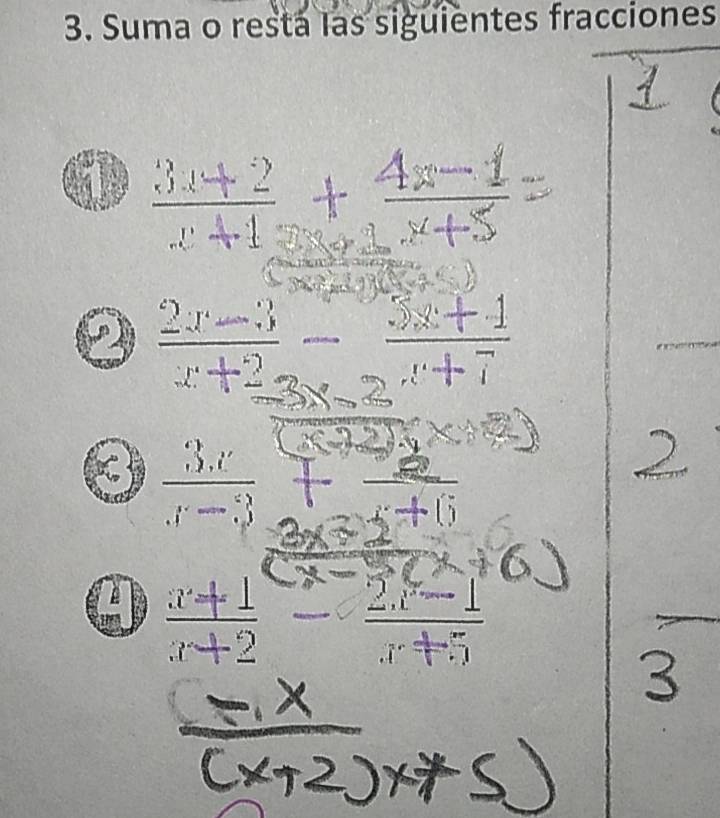 3. Suma o resta las siguientes fracciones
1
1 3x+2/x+1 + 4x-1/x+5 =
7x+1/(x+1)(x+5)
2 2x-3/x+2 - 5x+1/x+7
-3x-2/(x+2)(x+7)
2
3 3x/x-3 + 2/x+6
3x+2/(x-3(x+6)
4 x+1/x+2 - 2x-1/x+5
3
-x/(x+2)x+5)